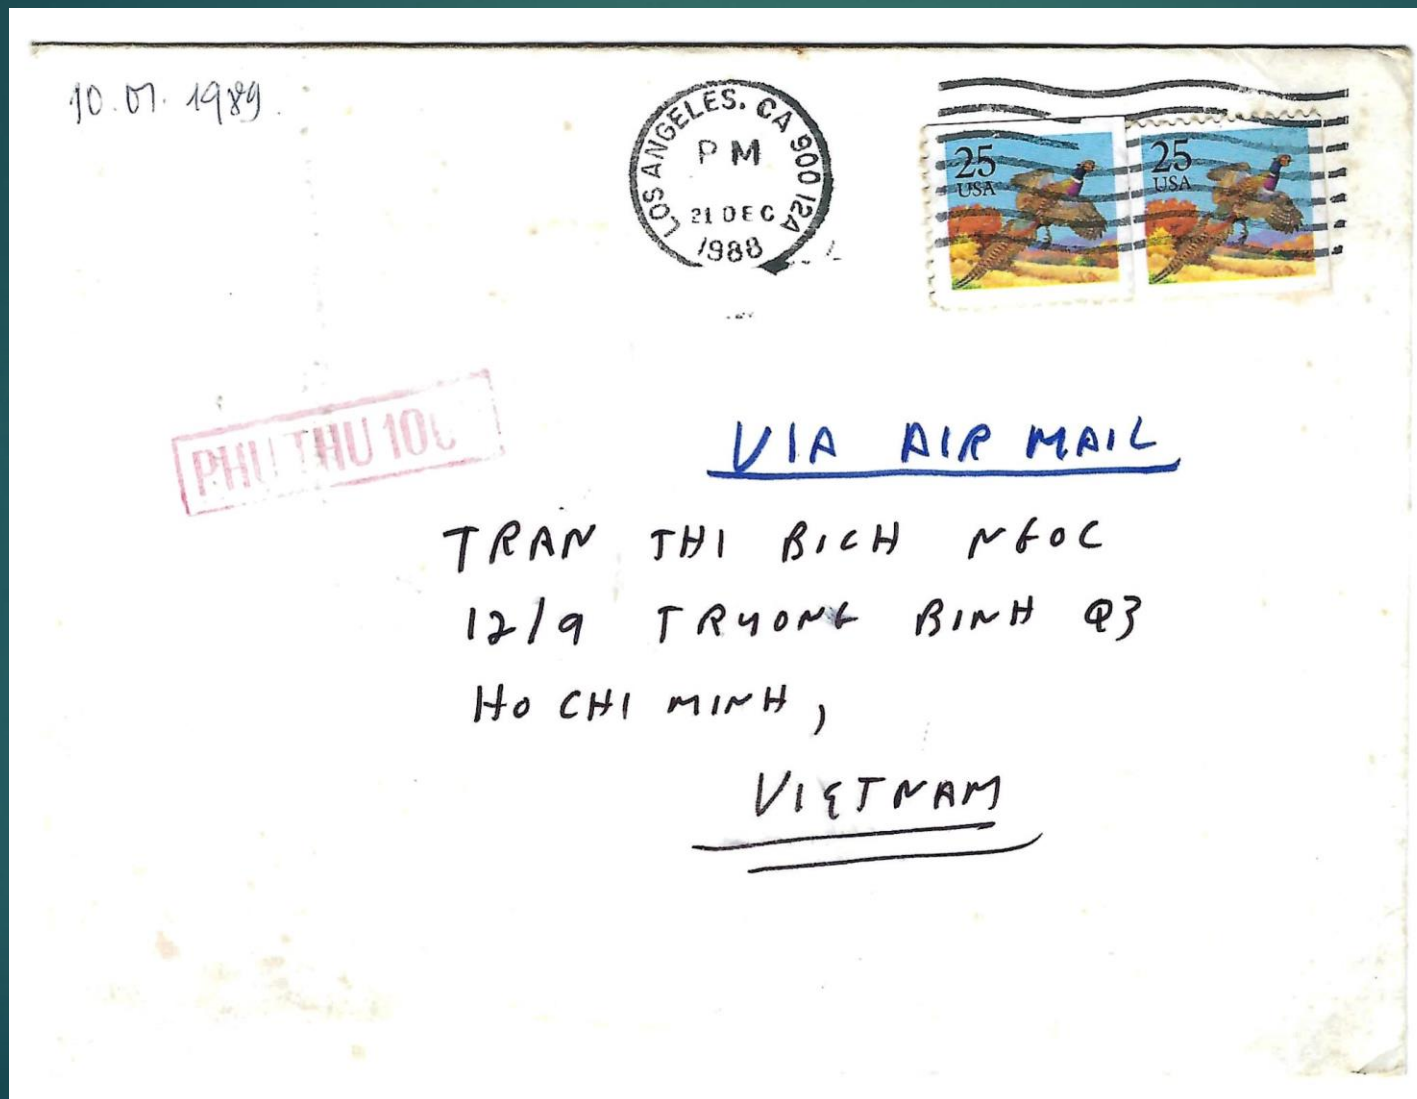 10.01.1989.
LOS ANGELES, CA 900 12A
PM
21 DEC
1988
25
USA
25
USA
PHU THU 10
VIA AIR MAIL
TRAN THI BICH NGOC
12/9 TRYONG BINH Q3
HO CHI MINH,
VIETNAM